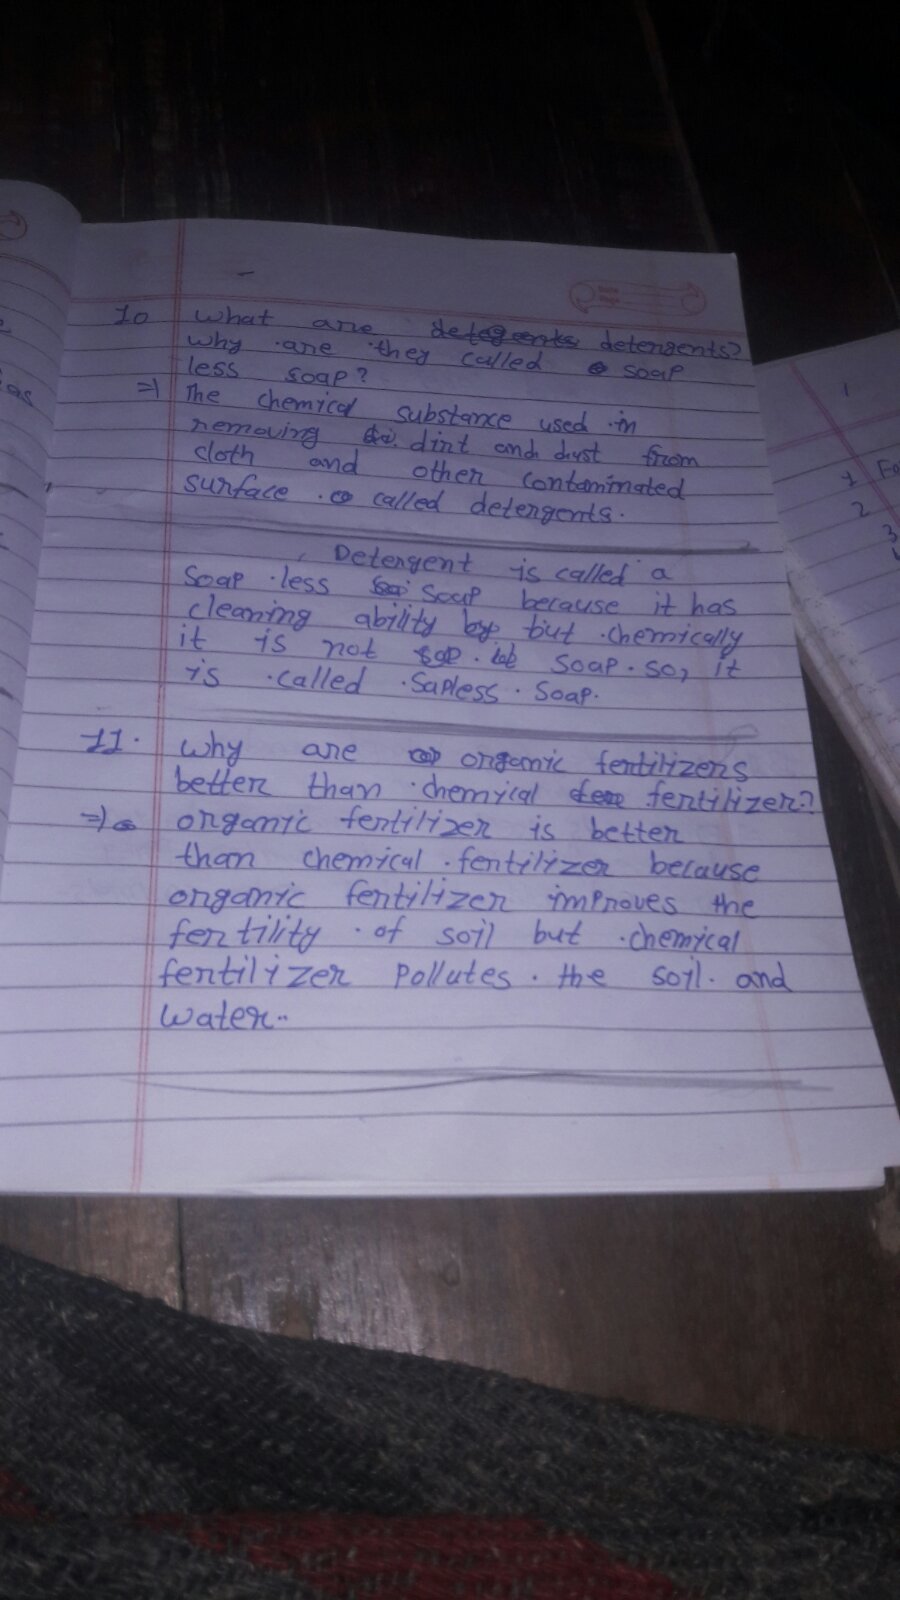 10 What are detergents?
why are they called soap
less soap?
=> The chemical substance used in
removing dirt and dust from
cloth and other contaminated
surface called detergents.
Detergent is called a
Soap less soap because it has
cleaning ability but chemically
it is not soap. so, it
is called Sapless Soap.
11. Why are organic fertilizers
better than chemical fertilizer?
=> organic fertilizer is better
than chemical fertilizer because
organic fertilizer improves the
fertility of soil but chemical
fertilizer pollutes the soil and
water..
as
1
1 Fo
2
3